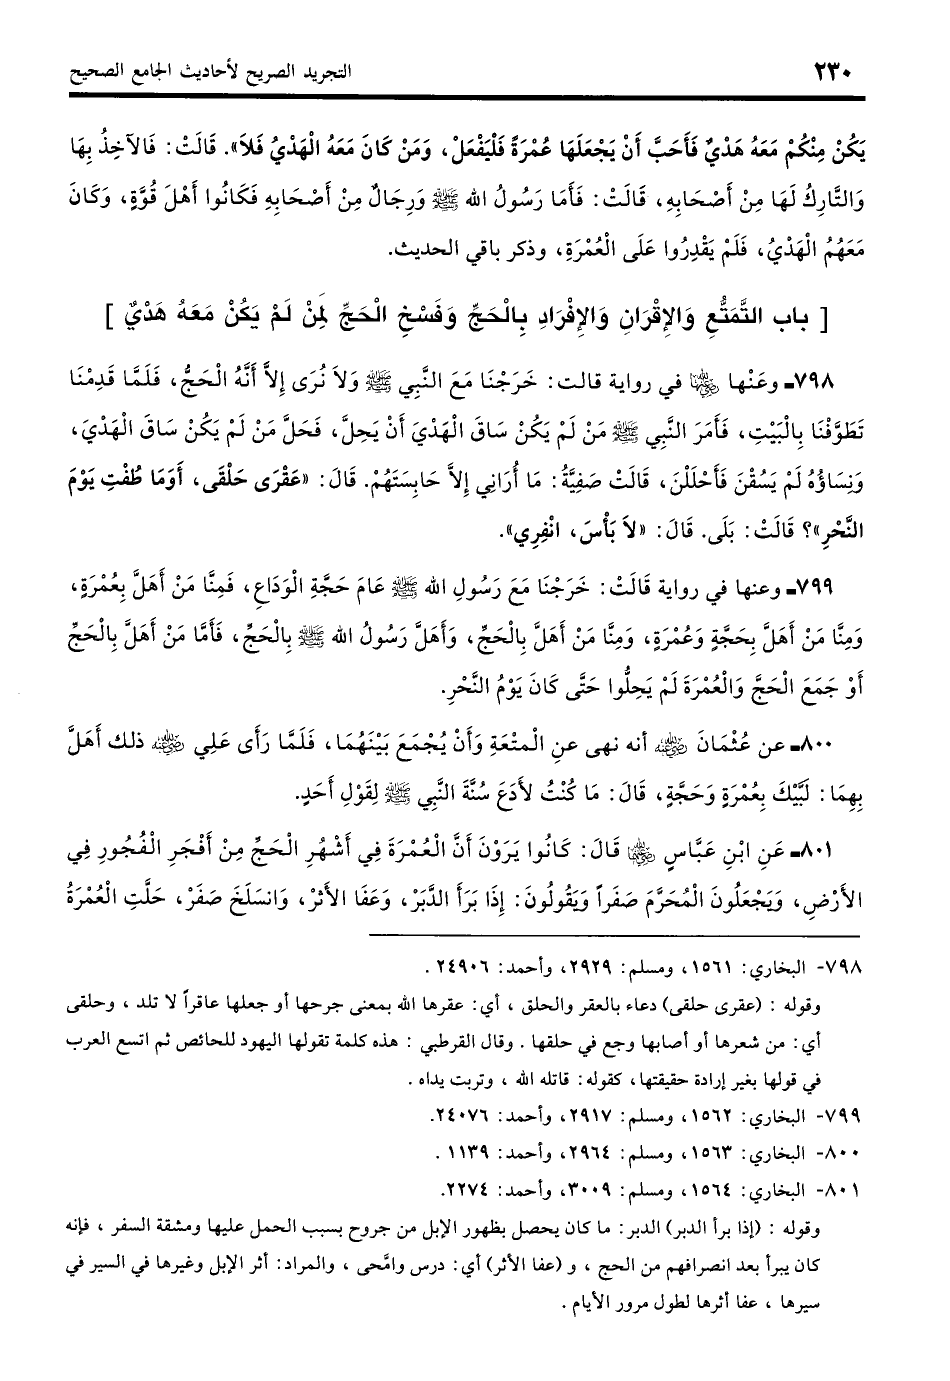 ٢٣٠ التجريد الصريح لأحاديث الجامع الصحيح
يَكُنْ مِنْكُمْ مَعَهُ هَدْيٌ فَأَحَبَّ أَنْ يَجْعَلَهَا عُمْرَةً فَلْيَفْعَلْ، وَمَنْ كَانَ مَعَهُ الْهَدْيُ فَلاَ». قَالَتْ: فَالآخِذُ بِهَا
وَالتَّارِكُ لَهَا مِنْ أَصْحَابِهِ، قَالَتْ: فَأَمَا رَسُولُ الله ﷺ وَرِجَالٌ مِنْ أَصْحَابِهِ فَكَانُوا أَهْلَ قُوَّةٍ، وَكَانَ
مَعَهُمُ الْهَدْيُ، فَلَمْ يَقْدِرُوا عَلَى الْعُمْرَةِ، وذكر باقي الحديث.
[ باب التَّمَتُّعِ وَالإِقْرَانِ وَالإِفْرَادِ بِالْحَجِّ وَفَسْخِ الْحَجِّ لِمَنْ لَمْ يَكُنْ مَعَهُ هَدْيٌ ]
٧٩٨ـ وعَنْها رضي الله عنها في رواية قالت: خَرَجْنَا مَعَ النَّبِي ﷺ وَلاَ نُرَى إِلاَّ أَنَّهُ الْحَجُّ، فَلَمَّا قَدِمْنَا
تَطَوَّفْنَا بِالْبَيْتِ، فَأَمَرَ النَّبِي ﷺ مَنْ لَمْ يَكُنْ سَاقَ الْهَدْيَ أَنْ يَحِلَّ، فَحَلَّ مَنْ لَمْ يَكُنْ سَاقَ الْهَدْيَ،
وَنِسَاؤُهُ لَمْ يَسُقْنَ فَأَحْلَلْنَ، قَالَتْ صَفِيَّةُ: مَا أُرَانِي إِلاَّ حَابِسَتَهُمْ. قَالَ: «عَقْرَى حَلْقَى، أَوَمَا طُفْتِ يَوْمَ
النَّحْرِ»؟ قَالَتْ: بَلَى. قَالَ: «لاَ بَأْسَ، انْفِرِي».
٧٩٩ـ وعنها في رواية قَالَتْ: خَرَجْنَا مَعَ رَسُولِ الله ﷺ عَامَ حَجَّةِ الْوَدَاعِ، فَمِنَّا مَنْ أَهَلَّ بِعُمْرَةٍ،
وَمِنَّا مَنْ أَهَلَّ بِحَجَّةٍ وَعُمْرَةٍ، وَمِنَّا مَنْ أَهَلَّ بِالْحَجِّ، وَأَهَلَّ رَسُولُ الله ﷺ بِالْحَجِّ، فَأَمَّا مَنْ أَهَلَّ بِالْحَجِّ
أَوْ جَمَعَ الْحَجَّ وَالْعُمْرَةَ لَمْ يَحِلُّوا حَتَّى كَانَ يَوْمُ النَّحْرِ.
٨٠٠ـ عن عُثْمَانَ رضي الله عنه أنه نهى عنِ الْمتْعَةِ وَأَنْ يُجْمَعَ بَيْنَهُمَا، فَلَمَّا رَأَى عَلِي رضي الله عنه ذلك أَهَلَّ
بِهِمَا: لَبَّيْكَ بِعُمْرَةٍ وَحَجَّةٍ، قَالَ: مَا كُنْتُ لأَدَعَ سُنَّةَ النَّبِي ﷺ لِقَوْلِ أَحَدٍ.
٨٠١ـ عَنِ ابْنِ عَبَّاسٍ رضي الله عنهما قَالَ: كَانُوا يَرَوْنَ أَنَّ الْعُمْرَةَ فِي أَشْهُرِ الْحَجِّ مِنْ أَفْجَرِ الْفُجُورِ فِي
الأَرْضِ، وَيَجْعَلُونَ الْمُحَرَّمَ صَفَراً وَيَقُولُونَ: إِذَا بَرَأَ الدَّبَرْ، وَعَفَا الأَثَرْ، وَانسَلَخَ صَفَرْ، حَلَّتِ الْعُمْرَةُ
٧٩٨- البخاري: ١٥٦١، ومسلم: ٢٩٢٩، وأحمد: ٢٤٩٠٦ .
وقوله : (عقرى حلقى) دعاء بالعقر والحلق ، أي: عقرها الله بمعنى جرحها أو جعلها عاقراً لا تلد ، وحلقى
أي: من شعرها أو أصابها وجع في حلقها . وقال القرطبي : هذه كلمة تقولها اليهود للحائص ثم اتسع العرب
في قولها بغير إرادة حقيقتها، كقوله: قاتله الله ، وتربت يداه .
٧٩٩- البخاري: ١٥٦٢، ومسلم: ٢٩١٧، وأحمد: ٢٤٠٧٦.
٨٠٠- البخاري: ١٥٦٣، ومسلم: ٢٩٦٤، وأحمد: ١١٣٩ .
٨٠١- البخاري: ١٥٦٤، ومسلم: ٣٠٠٩، وأحمد: ٢٢٧٤.
وقوله : (إذا برأ الدبر) الدبر: ما كان يحصل بظهور الإبل من جروح بسبب الحمل عليها ومشقة السفر ، فإنه
كان يبرأ بعد انصرافهم من الحج ، و (عفا الأثر) أي: درس وامَّحى ، والمراد: أثر الإبل وغيرها في السير في
سيرها ، عفا أثرها لطول مرور الأيام .